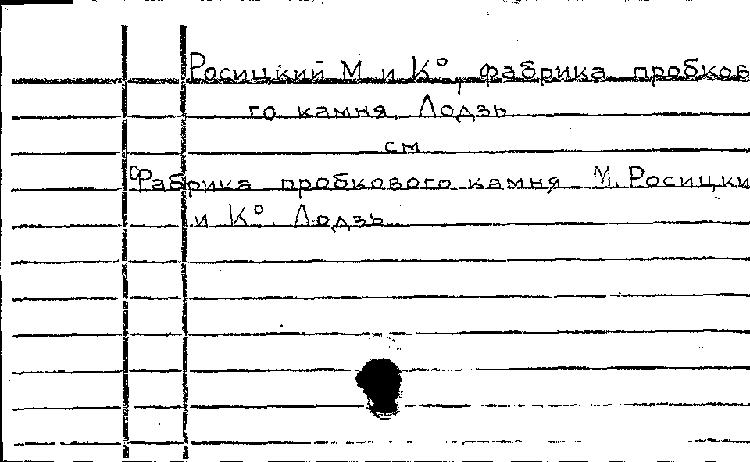 Росицкий М и К°, фабрика пробков
го камня. Лодзь
см
Фабрика пробкового камня М. Росицки
и К°. Лодзь